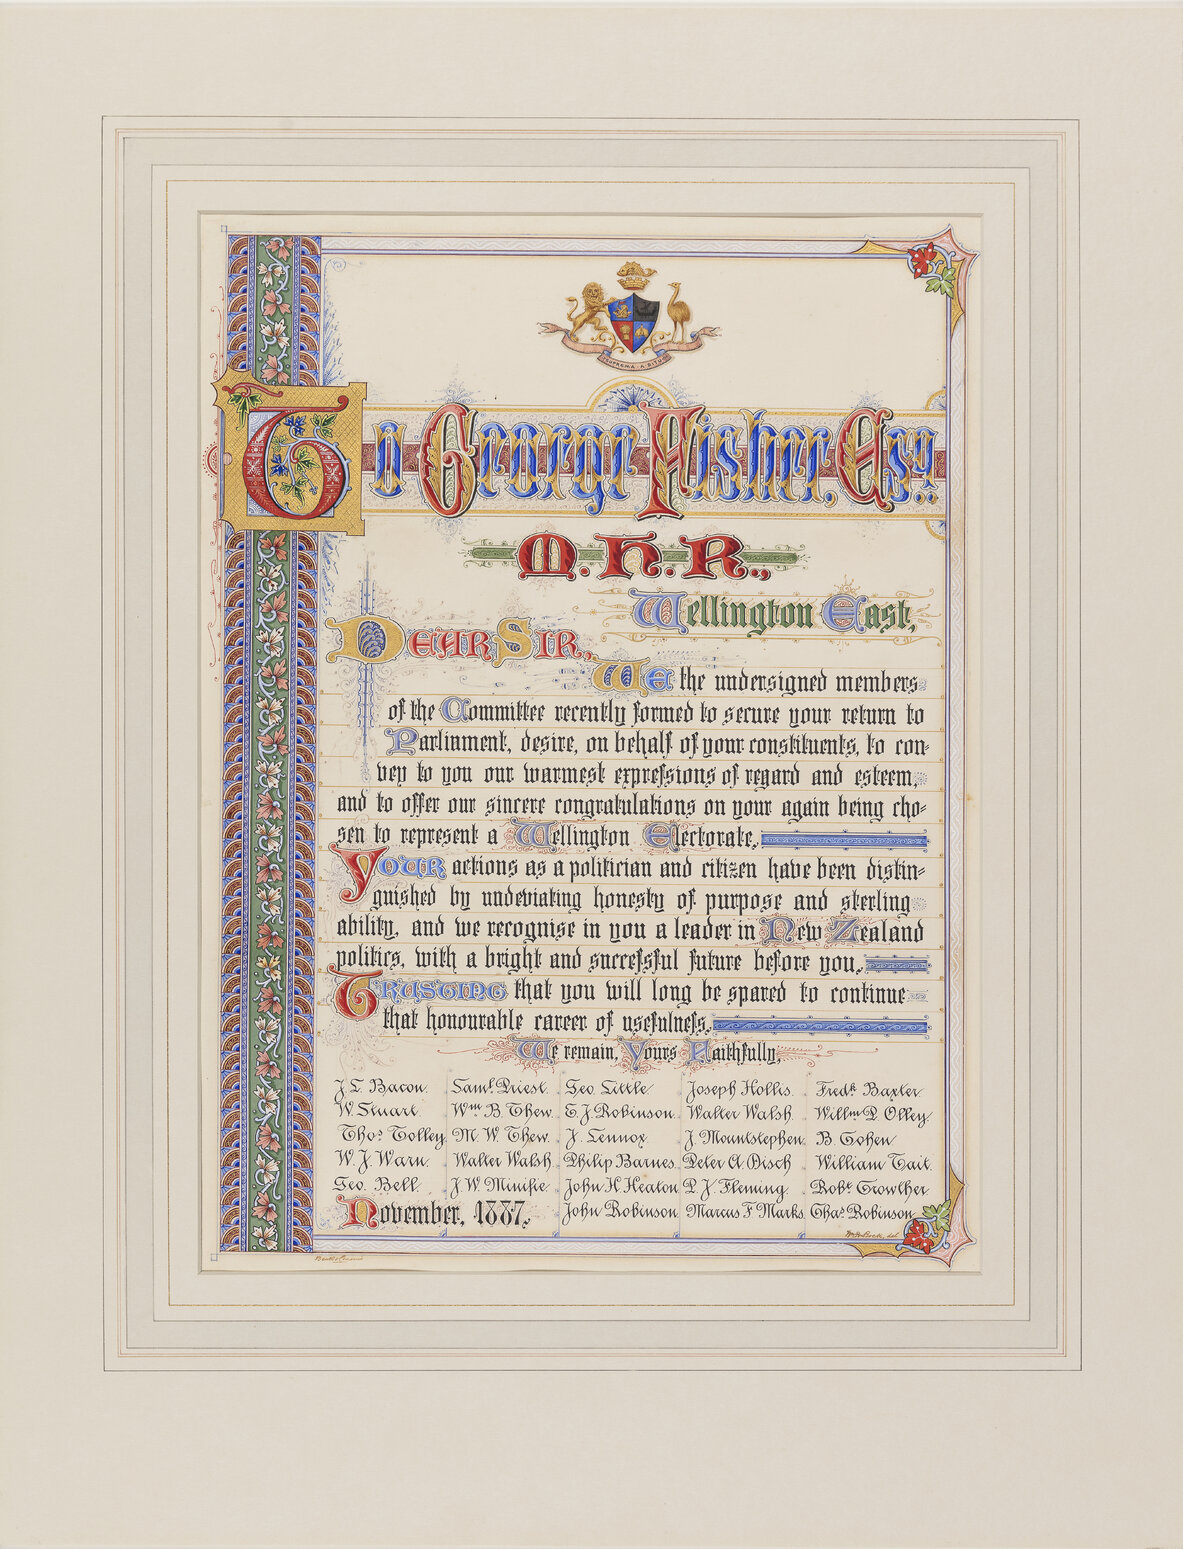 SUPREMA A SITU
To George Fisher, Esq.,
M.H.R.,
Wellington East,
DEAR SIR,
WE the undersigned members
of the Committee recently formed to secure your return to
Parliament, desire, on behalf of your constituents, to con-
vey to you our warmest expressions of regard and esteem,
and to offer our sincere congratulations on your again being cho-
sen to represent a Wellington Electorate.
YOUR actions as a politician and citizen have been distin-
guished by undeviating honesty of purpose and sterling
ability, and we recognise in you a leader in New Zealand
politics, with a bright and successful future before you.
TRUSTING that you will long be spared to continue
that honourable career of usefulness,
We remain, Yours Faithfully,
J. C. Bacon. Saml. Priest. Geo. Little Joseph Hollis. Fredk. Baxter
W. Stuart Wm. B. Thew. E. J. Robinson. Walter Walsh Willm. P. Olley.
Thos. Tolley. M. W. Thew. J. Lennox. J. Mountstephen. B. Cohen
W. J. Warn. Walter Walsh Philip Barnes. Peter A. Disch William Tait.
Geo. Bell. J. W. Minifie John H. Heaton P. J. Fleming. Robt. Crowther
November, 1887. John Robinson Marcus F. Marks. Chas. Robinson
W. Bock, del.